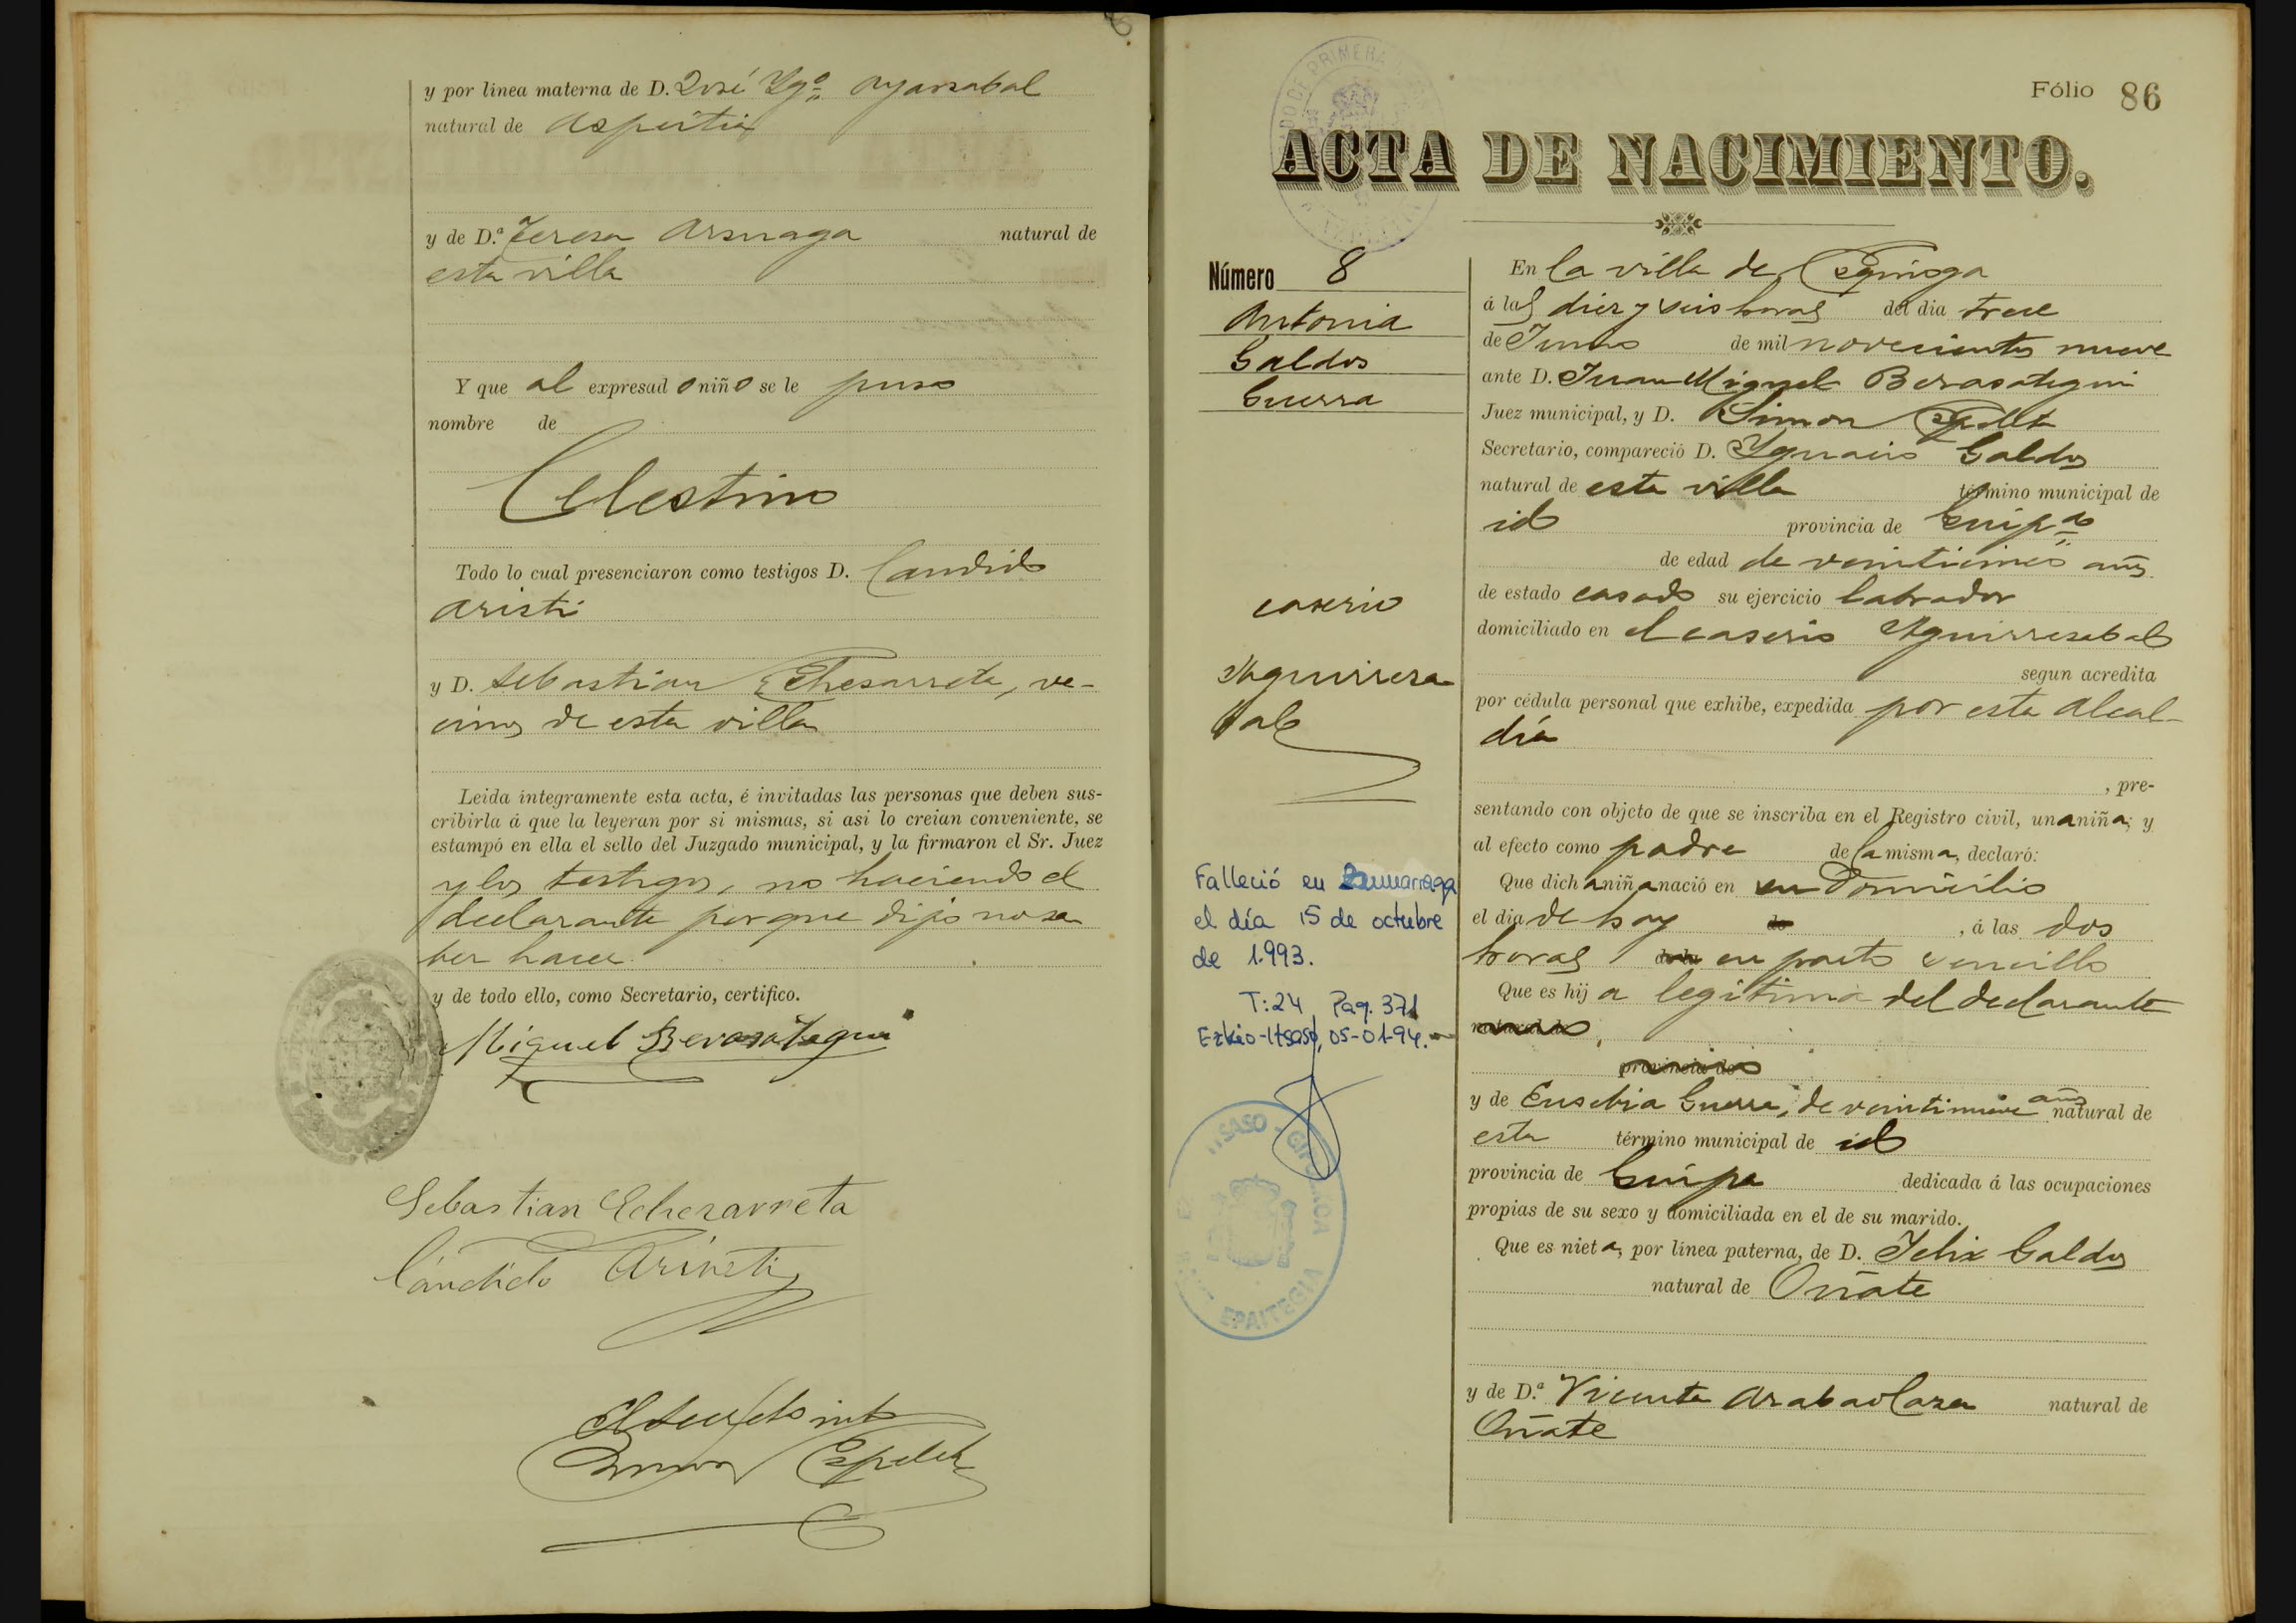 y por línea materna de D. José Ygº Oyarzabal
natural de Aspeitia
y de D.ª Teresa Arsuaga natural de
esta villa
Y que al expresado niño se le puso
nombre de
Celestino
Todo lo cual presenciaron como testigos D. Candido
Aristi
y D. Sebastian Echesarreta, ve-
cinos de esta villa
Leida íntegramente esta acta, é invitadas las personas que deben sus-
cribirla á que la leyeran por si mismas, si asi lo creian conveniente, se
estampó en ella el sello del Juzgado municipal, y la firmaron el Sr. Juez
y los testigos, no haciendo el
declarante porque dijo no sa
ber hacer
y de todo ello, como Secretario, certifico.
Miguel Berasategui
Sebastian Echezarreta
Cándido Aristi
Simon Espelet
Fólio 86
ACTA DE NACIMIENTO.
Número 8
Antonia
Galdos
Guerra
caserio
Aguirresa
bal
Falleció en Zumarraga
el día 15 de octubre
de 1.993.
T:24 Pag. 371
Ezkio-Itsaso, 05-01-94.
ITSASO - GIPUZKOA
EPAITEGIA
En la villa de Ezquioga
á las diez y seis horas del dia trece
de Junio de mil novecientos nueve
ante D. Juan Miguel Berasategui
Juez municipal, y D. Simon Espelet
Secretario, compareció D. Ygnacio Galdos
natural de esta villa término municipal de
id provincia de Guipª
de edad de veinticinco años
de estado casado su ejercicio labrador
domiciliado en el caserio Aguirresabal
segun acredita
por cédula personal que exhibe, expedida por esta Alcal-
día
, pre-
sentando con objeto de que se inscriba en el Registro civil, una niña; y
al efecto como padre de la misma, declaró:
Que dicha niña nació en su domicilio
el dia de hoy de , á las dos
horas de la en parto sencillo
Que es hija legitima del declarante
natural de
provincia de
y de Eusebia Guerra, de veintinueve años natural de
esta término municipal de id
provincia de Guipa dedicada á las ocupaciones
propias de su sexo y domiciliada en el de su marido.
Que es nieta, por línea paterna, de D. Felix Galdos
natural de Oñate
y de D.ª Vicenta Arabaolaza natural de
Oñate